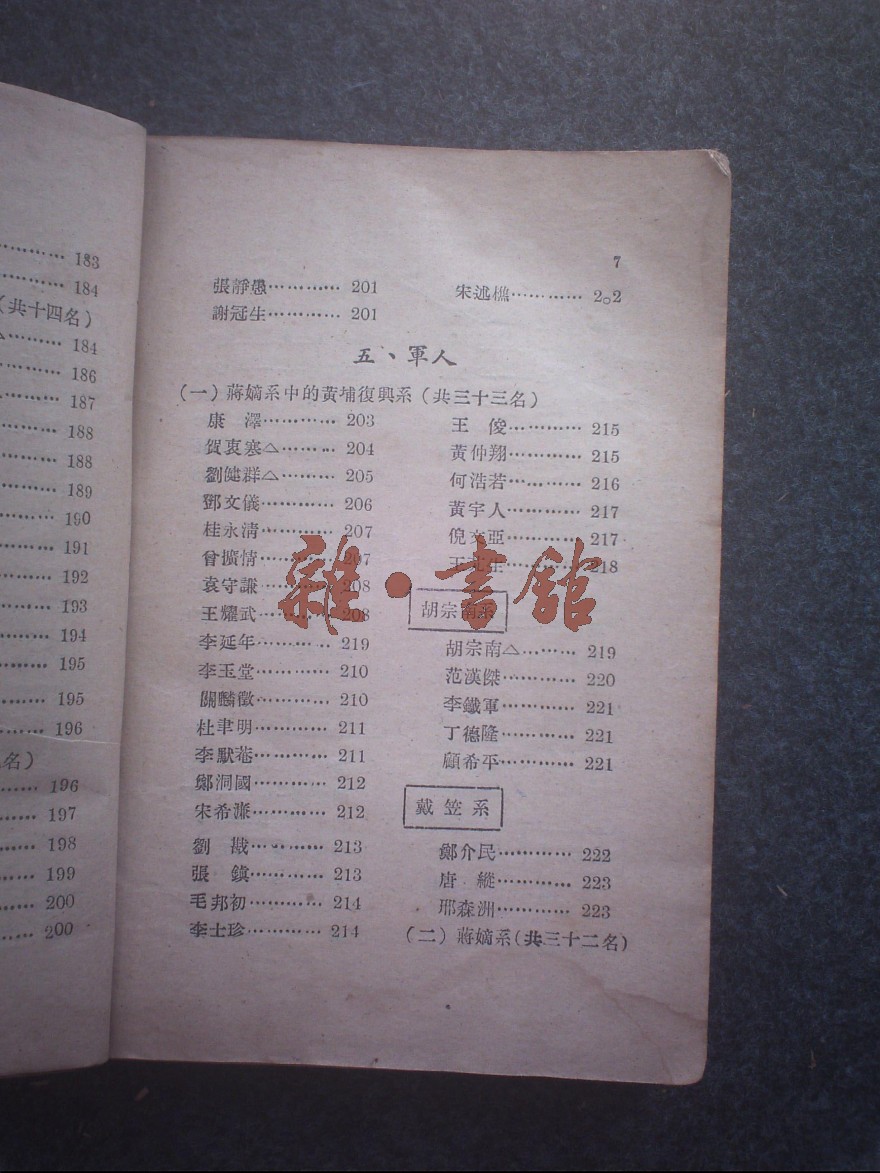 183
184
(共十四名)
184
186
187
188
188
189
190
191
192
193
194
195
195
196
名)
196
197
198
199
200
200
7
張靜愚………… 201
謝冠生………… 201
宋述樵………… 2o2
五、軍人
(一)蔣嫡系中的黃埔復興系(共三十三名)
康 澤………… 203
賀衷寒△……… 204
劉健群△……… 205
鄧文儀………… 206
桂永清………… 207
曾擴情………… 207
袁守謙………… 208
王耀武………… 208
李延年………… 219
李玉堂………… 210
關麟徵………… 210
杜聿明………… 211
李默菴………… 211
鄭洞國………… 212
宋希濂………… 212
劉 戡………… 213
張 鎮………… 213
毛邦初………… 214
李士珍………… 214
王 俊………… 215
黃仲翔………… 215
何浩若………… 216
黃宇人………… 217
倪文亞………… 217
218
胡宗南系
胡宗南△……… 219
范漢傑………… 220
李鐵軍………… 221
丁德隆………… 221
顧希平………… 221
戴笠系
鄭介民………… 222
唐 縱………… 223
邢森洲………… 223
(二)蔣嫡系(共三十二名)
雜·書館